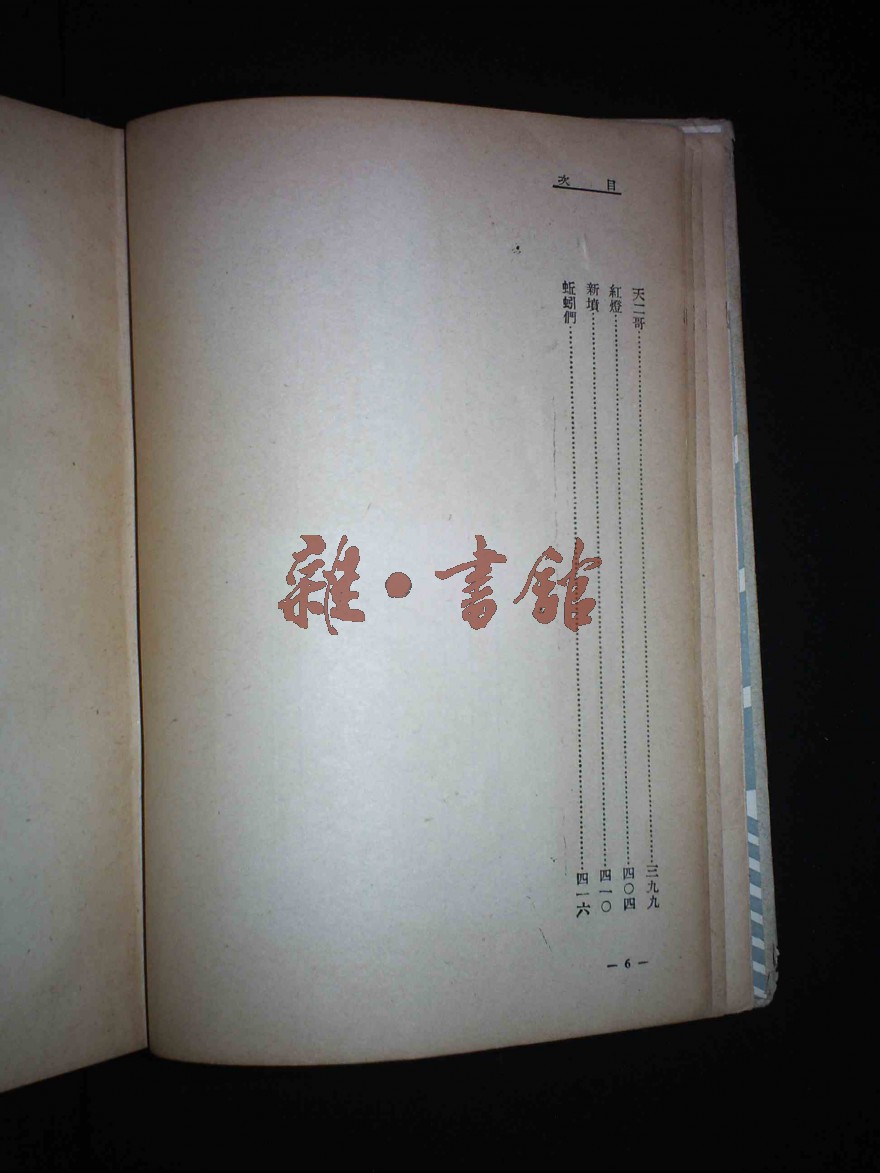 目次
天二哥……三九九
紅燈……四〇四
新墳……四一〇
蚯蚓們……四一六
— 6 —
雜·書館